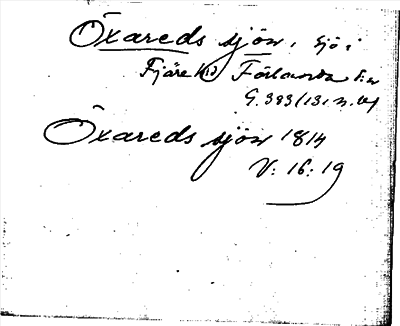 Öxareds sjön, sjö i
Fjäre hd Förlanda sn
G. 393 (131 n.
Öxareds sjön 1814
V: 16: 19